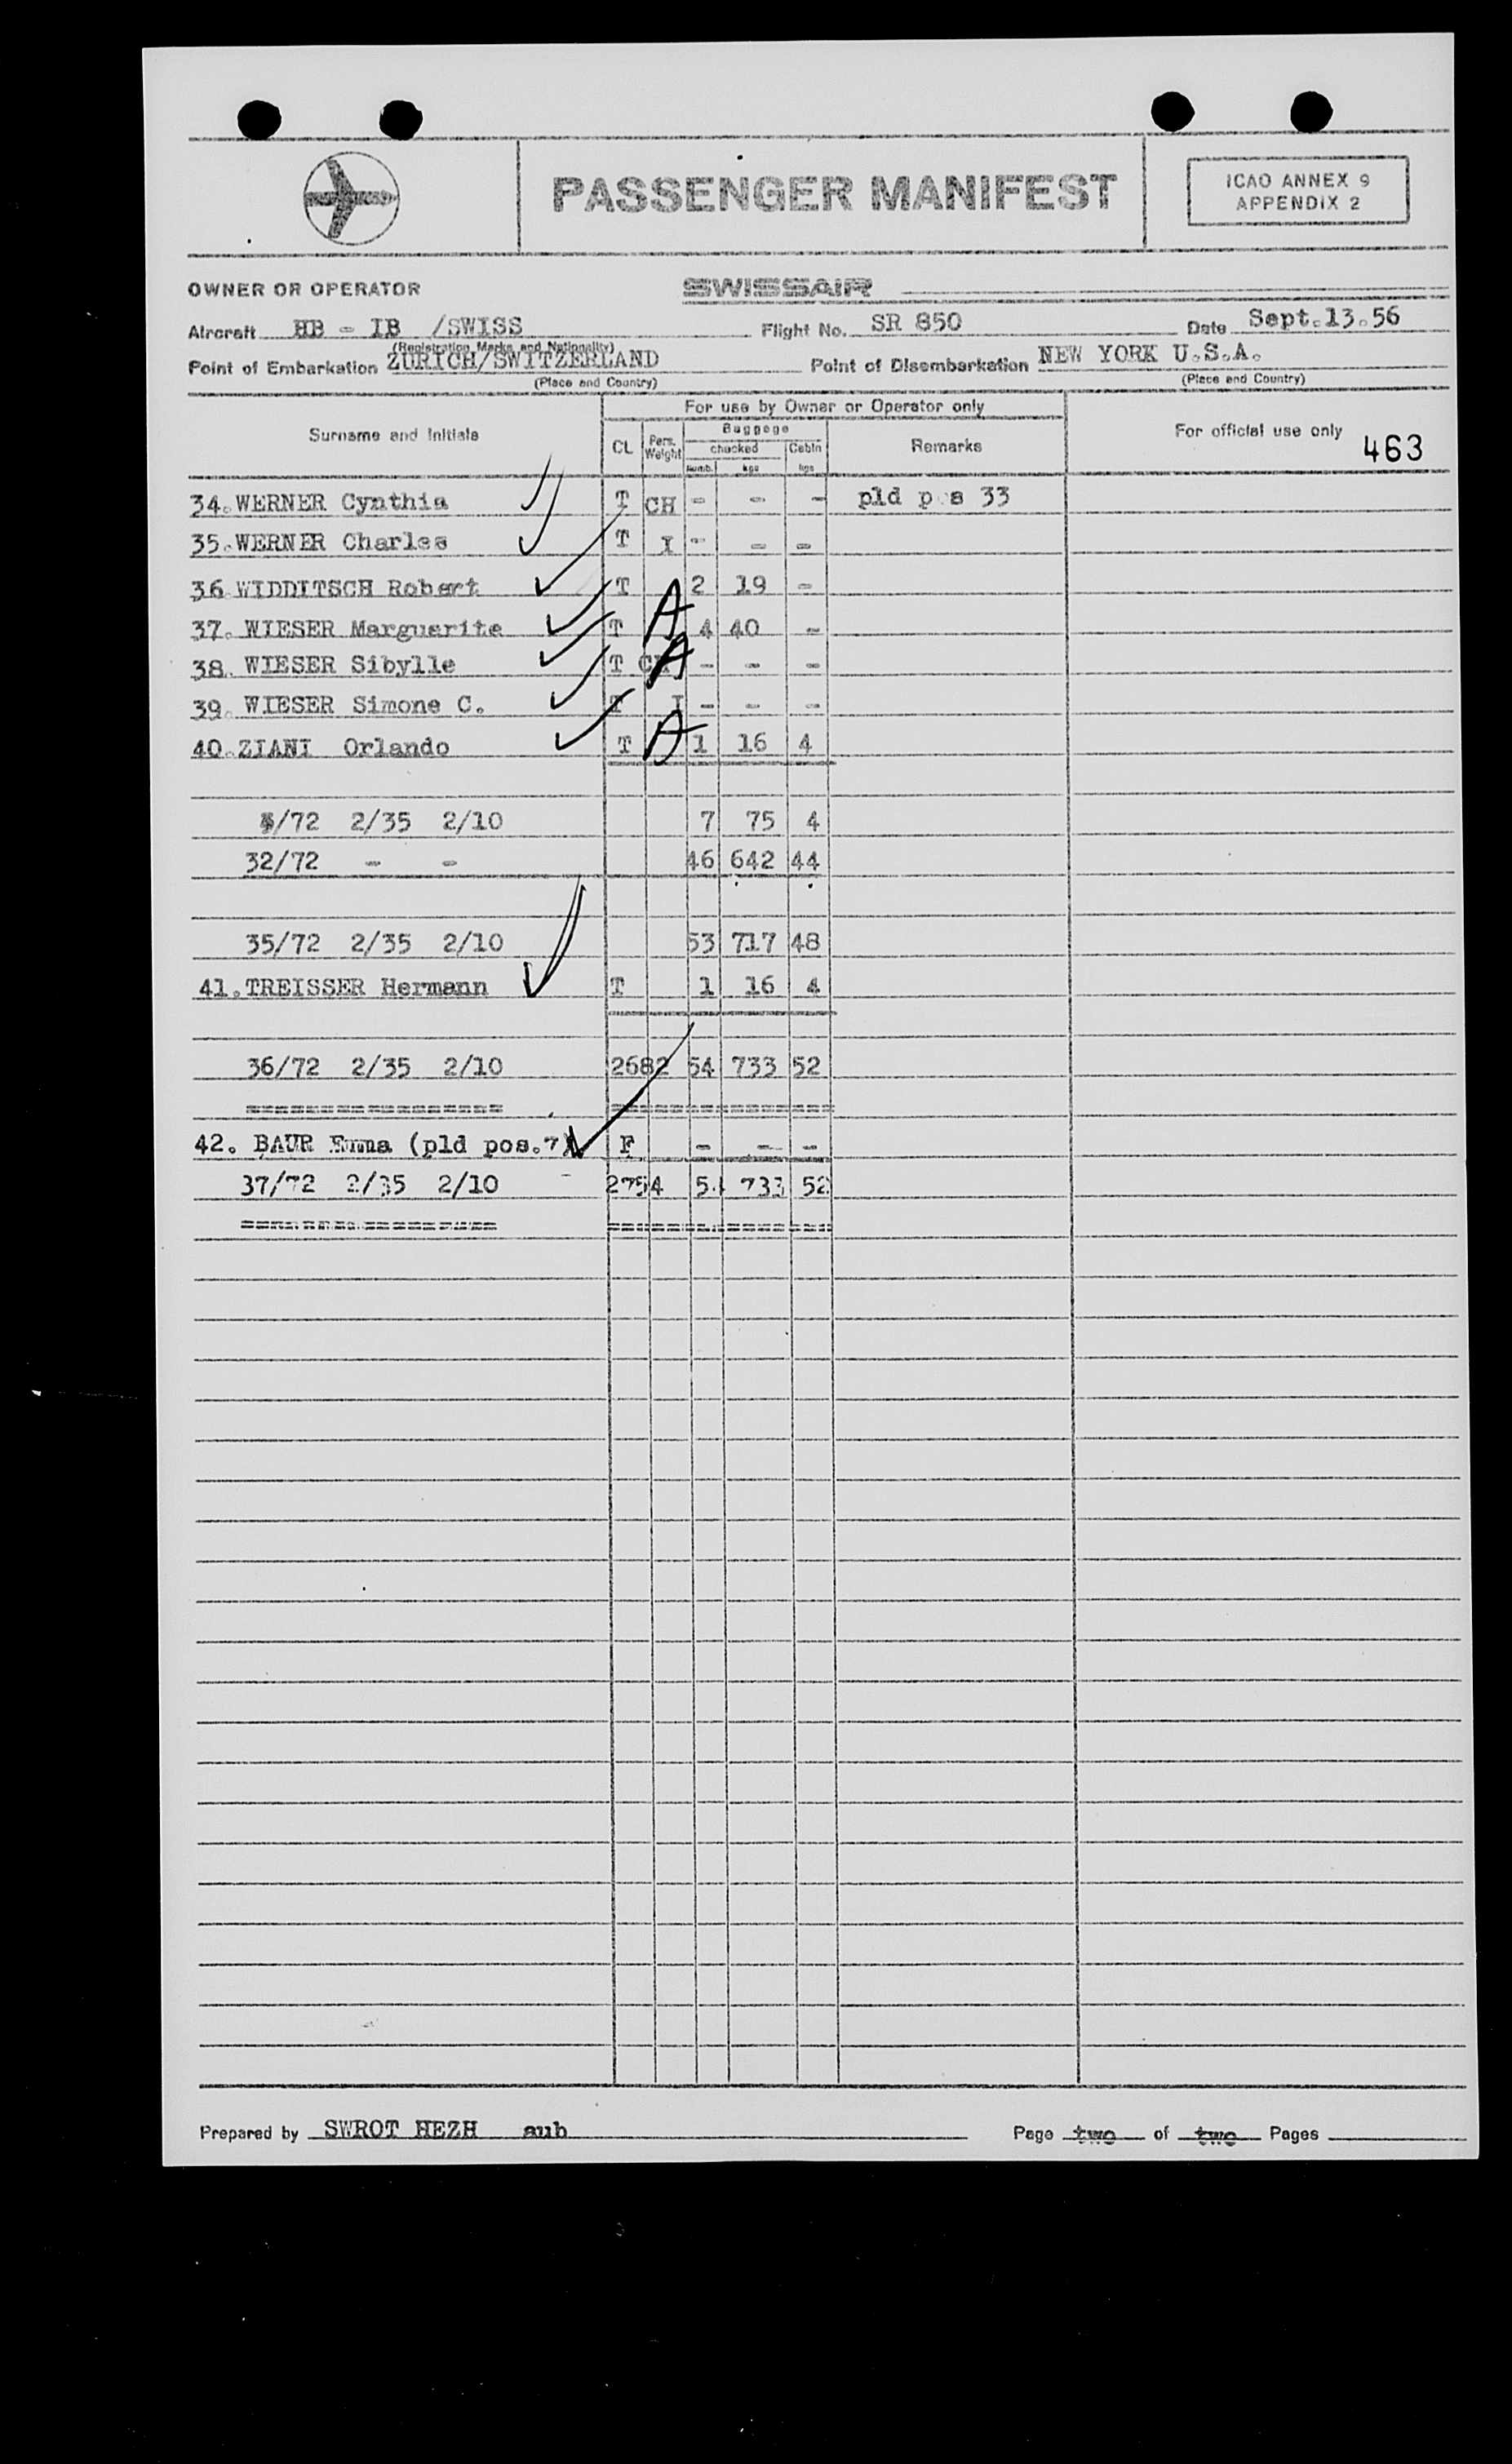 PASSENGER MANIFEST
ICAO ANNEX 9
APPENDIX 2
OWNER OR OPERATOR SWISSAIR
Aircraft HB - IB /SWISS Flight No. SR 850 Date Sept.13.56
(Registration Marks and Nationality)
Point of Embarkation ZURICH/SWITZERLAND Point of Disembarkation NEW YORK U.S.A.
(Place and Country) (Place and Country)
For use by Owner or Operator only
Surname and Initials CL Pers. Weight Baggage checked Numb. kgs Cabin kgs Remarks For official use only 463
34. WERNER Cynthia T CH - - - pld pos 33
35. WERNER Charles T I - - -
36. WIDDITSCH Robert T 2 19 -
37. WIESER Marguerite T A 4 40 -
38. WIESER Sibylle T A - - -
39. WIESER Simone C. T I - - -
40. ZIANI Orlando T A 1 16 4
/72 2/35 2/10 7 75 4
32/72 - - 46 642 44
35/72 2/35 2/10 53 717 48
41. TREISSER Hermann T 1 16 4
36/72 2/35 2/10 2682 54 733 52
==================
42. BAUR Emma (pld pos.7) F - - -
37/72 2/35 2/10 2754 54 733 52
==================
Prepared by SWROT HEZH aub Page two of two Pages